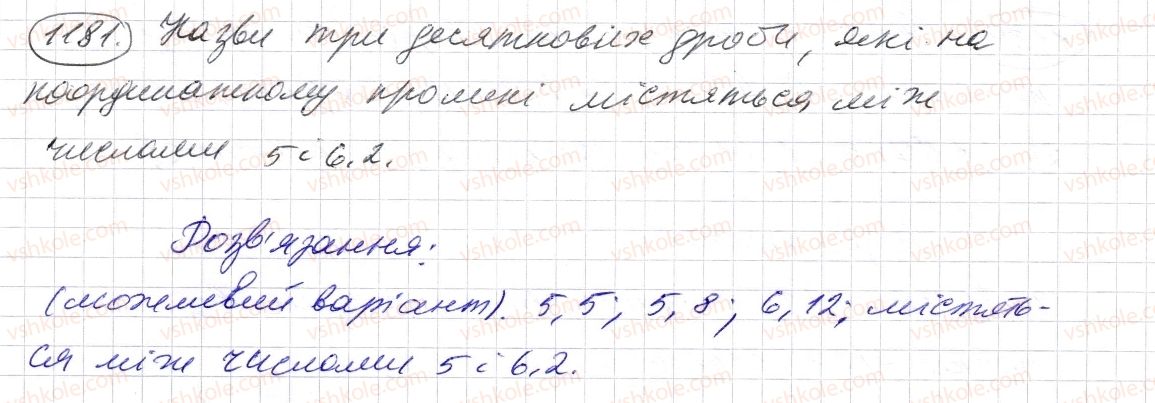 1181. Назви три десяткових дроби, які на
координатному промені містяться між
числами 5 і 6,2.
Розв'язання:
(можливий варіант). 5,5; 5,8; 6,12; містять-
ся між числами 5 і 6,2.